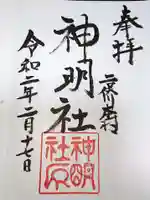 奉拝
神明社
令和二年二月十七日
神明
社印